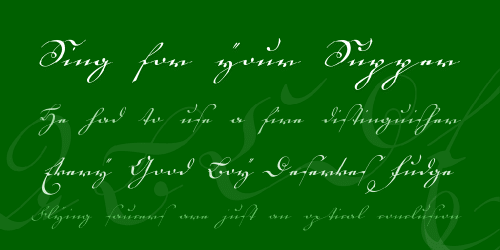 Sing for your Supper
He had to use a fire distinguisher
Every Good Boy Deserves Fudge
Flying saucers are just an optical conclusion